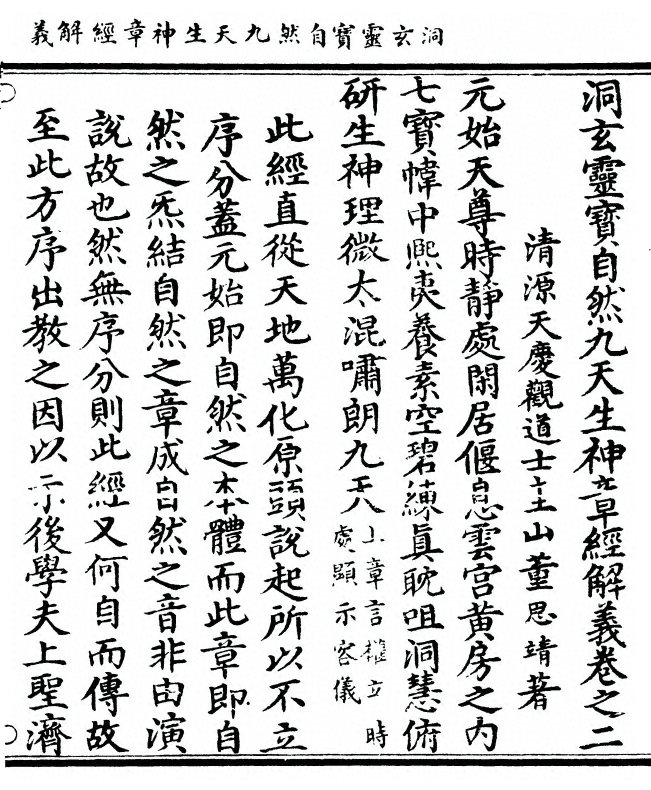 洞玄靈寶自然九天生神章經解義
洞玄靈寶自然九天生神章經解義卷之二
清源天慶觀道士圭山董思靖著
元始天尊時靜處閑居偃息雲宮黃房之內
七寶幃中熙夷養素空碧練眞耽咀洞慧俯
研生神理微太混嘯朗九天上章言權立時處顯示容儀
此經直從天地萬化原頭說起所以不立
序分蓋元始即自然之本體而此章即自
然之炁結自然之章成自然之音非由演
說故也然無序分則此經又何自而傳故
至此方序出教之因以示後學夫上聖濟